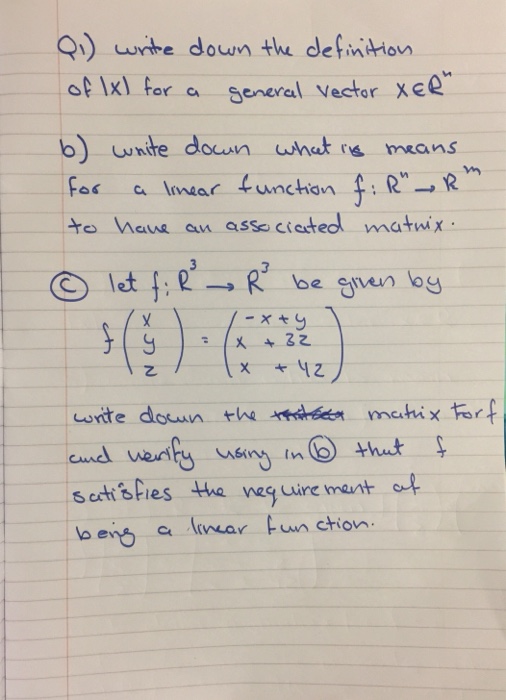 Q1) write down the definition
of |x| for a general vector x∈Rⁿ
b) write down what is means
for a linear function f: Rⁿ → Rᵐ
to have an associated matrix.
Ⓒ let f: R³ → R³ be given by
f (x y z) = (-x + y
x + 3z
x + 4z)
write down the matrix for f
and verify using in ⓑ that f
satisfies the requirement of
being a linear function.